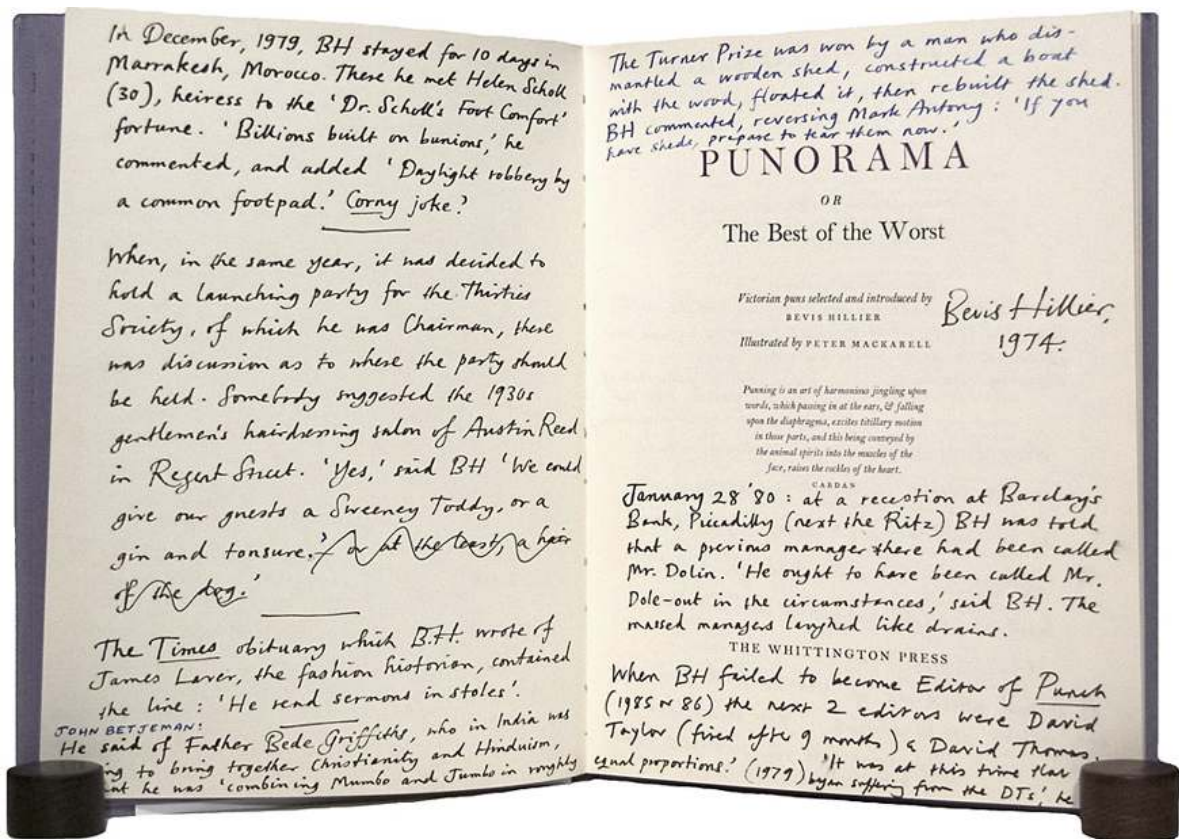 In December, 1979, BH stayed for 10 days in
Marrakesh, Morocco. There he met Helen Scholl
(30), heiress to the 'Dr. Scholl's Foot Comfort'
fortune. 'Billions built on bunions,' he
commented, and added 'Daylight robbery by
a common footpad.' Corny joke?
When, in the same year, it was decided to
hold a launching party for the Thirties
Society, of which he was Chairman, there
was discussion as to where the party should
be held. Somebody suggested the 1930s
gentlemen's hairdressing salon of Austin Reed
in Regent Street. 'Yes,' said BH 'We could
give our guests a Sweeney Toddy, or a
gin and tonsure.' or at the least, a hair
of the dog.'
The Times obituary which B.H. wrote of
James Laver, the fashion historian, contained
the line: 'He read sermons in stoles'.
JOHN BETJEMAN:
He said of Father Bede Griffiths, who in India was
to bring together Christianity and Hinduism,
he was 'combining Mumbo and Jumbo in roughly
equal proportions.' (1979)
The Turner Prize was won by a man who dis-
mantled a wooden shed, constructed a boat
with the wood, floated it, then rebuilt the shed.
BH commented, reversing Mark Antony: 'If you
have sheds, prepare to tear them now.'
PUNORAMA
OR
The Best of the Worst
Victorian puns selected and introduced by
BEVIS HILLIER
Illustrated by PETER MACKARELL
Bevis Hillier,
1974.
Punning is an art of harmonious jingling upon
words, which passing in at the ears, & falling
upon the diaphragma, excites titillary motion
in those parts, and this being conveyed by
the animal spirits into the muscles of the
face, raises the cockles of the heart.
CARDAN
January 28 '80: at a reception at Barclay's
Bank, Piccadilly (next the Ritz) BH was told
that a previous manager there had been called
Mr. Dolin. 'He ought to have been called Mr.
Dole-out in the circumstances,' said BH. The
massed managers laughed like drains.
THE WHITTINGTON PRESS
When BH failed to become Editor of Punch
(1985 or 86) the next 2 editors were David
Taylor (fired after 9 months) & David Thomas.
'It was at this time that
began suffering from the DTs', he